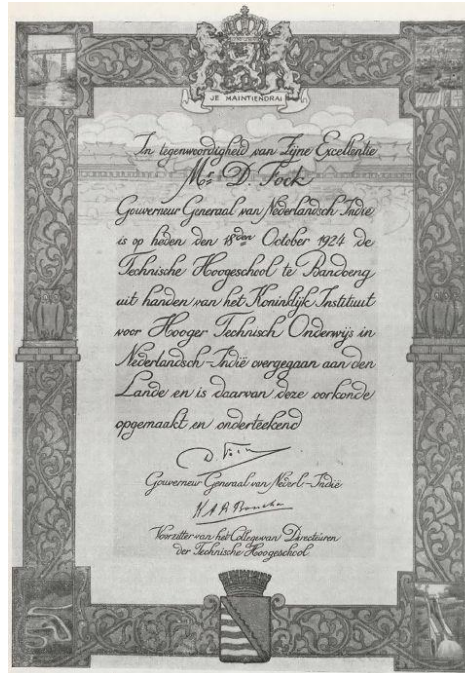 JE MAINTIENDRAI
In tegenwoordigheid van Zijne Excellentie
Mr. D. Fock
Gouverneur Generaal van Nederlandsch-Indië
is op heden den 18den October 1924 de
Technische Hoogeschool te Bandoeng
uit handen van het Koninklijk Instituut
voor Hooger Technisch Onderwijs in
Nederlandsch-Indië overgegaan aan den
Lande en is daarvan deze oorkonde
opgemaakt en onderteekend
D. Fock
Gouverneur Generaal van Nederl-Indië
K A R
Voorzitter van het College van Directeuren
der Technische Hoogeschool